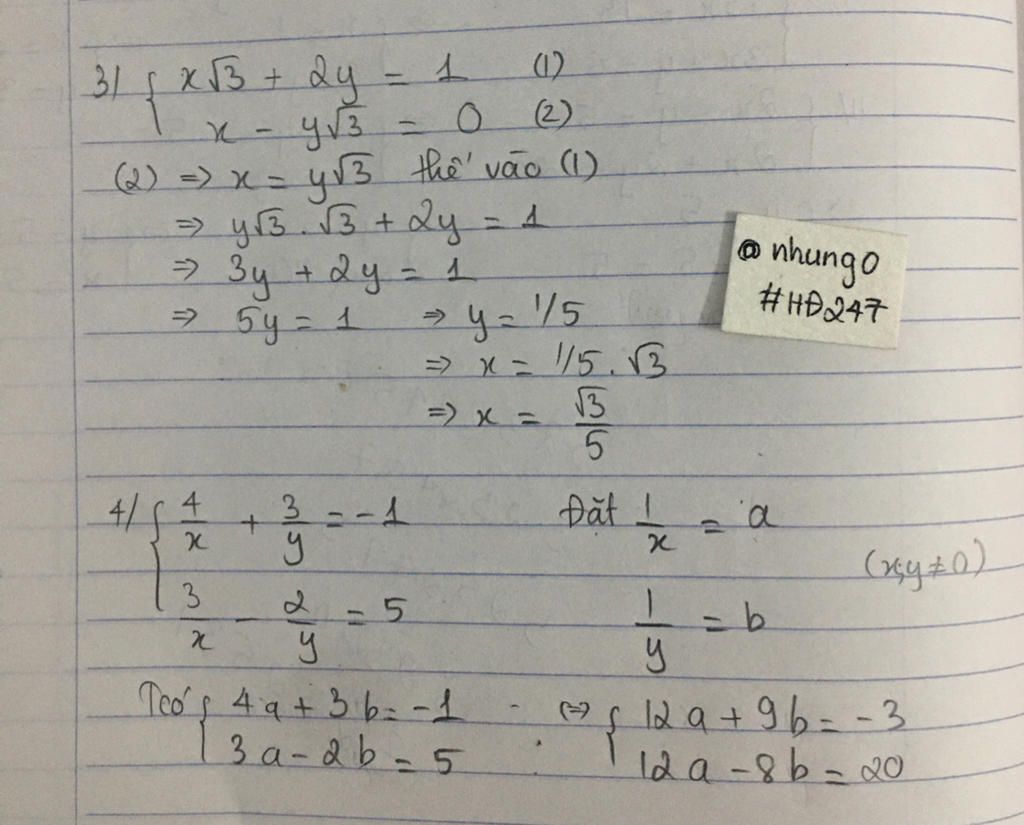 3/ { x√3 + 2y = 1 (1)
x - y√3 = 0 (2)
(2) ⇒ x = y√3 thế vào (1)
⇒ y√3 . √3 + 2y = 1
⇒ 3y + 2y = 1
⇒ 5y = 1 ⇒ y = 1/5
⇒ x = 1/5 . √3
⇒ x = √3/5
@nhung0
#HĐ247
4/ { 4/x + 3/y = -1 Đặt 1/x = a
(x;y ≠ 0)
3/x - 2/y = 5 1/y = b
Tcó { 4a + 3b = -1 (⇒) { 12a + 9b = -3
3a - 2b = 5 12a - 8b = 20